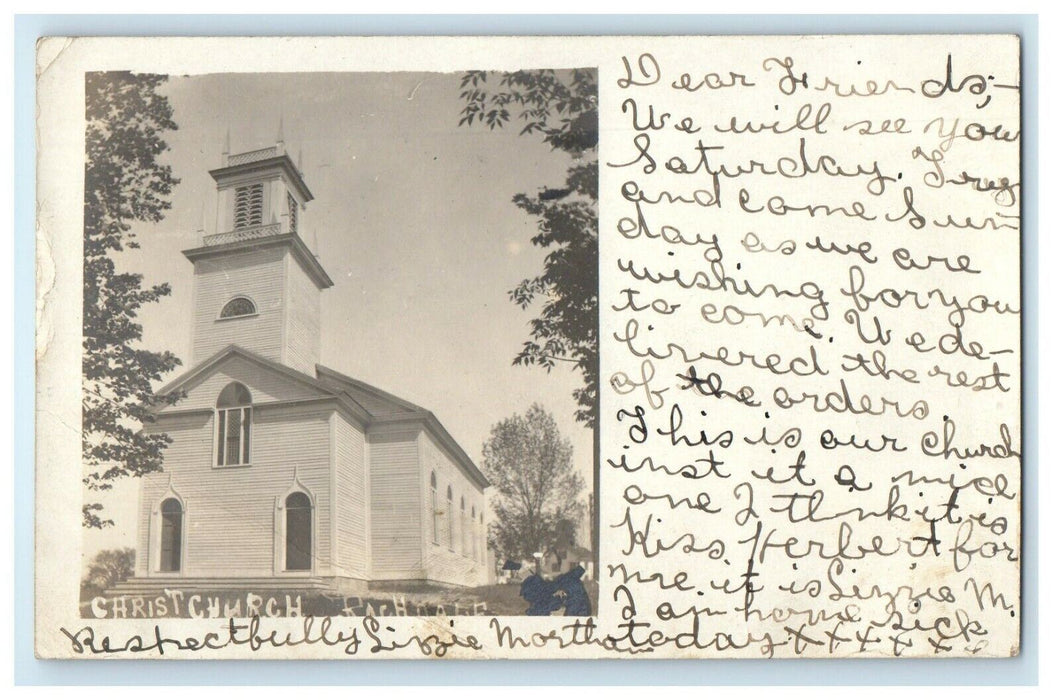 Dear Friends;—
We will see you
Saturday. Try
and come Sun-
day as we are
wishing for you
to come. We de-
livered the rest
of the orders.
This is our church
inst it a nice
one I thnk it is
Kiss Herbert for
me. it is Lizzie M.
I am home sick
today x x x x x x
CHRIST CHURCH
Respectbully Lizzie